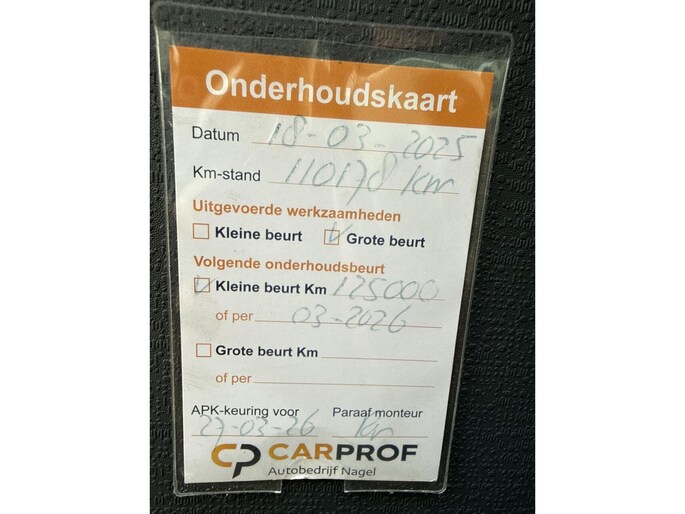 Onderhoudskaart
Datum 18-03-2025
Km-stand 110178 km
Uitgevoerde werkzaamheden
Kleine beurt Grote beurt
Volgende onderhoudsbeurt
Kleine beurt Km 125000
of per 03-2026
Grote beurt Km
of per
APK-keuring voor Paraaf monteur
27-03-26
CP CARPROF
Autobedrijf Nagel